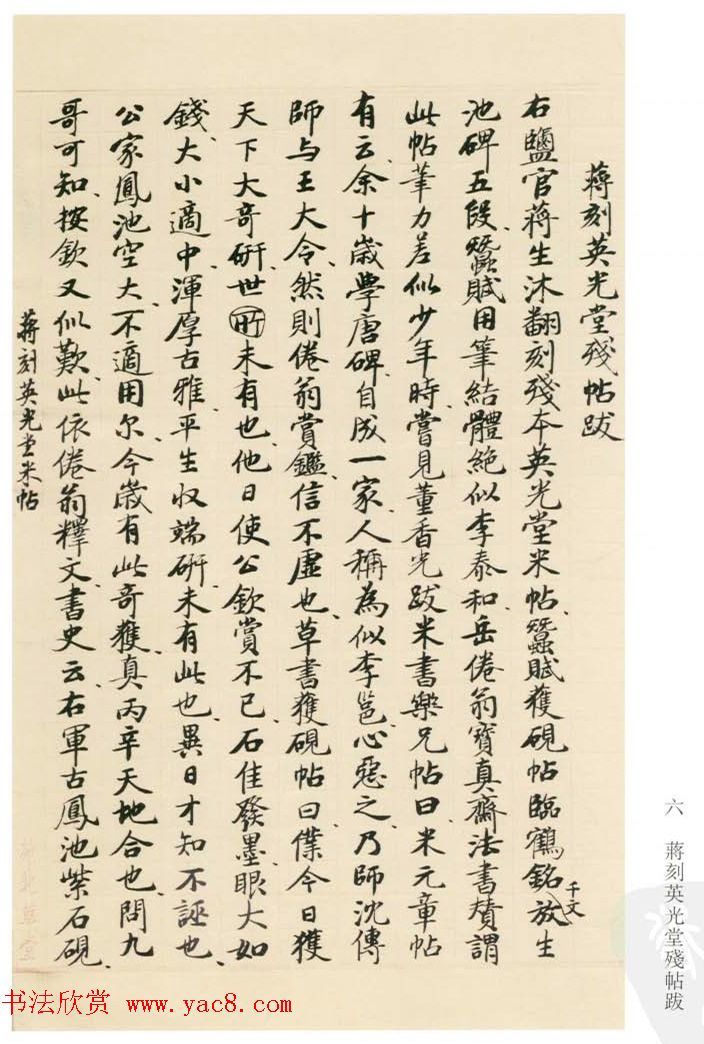 蔣刻英光堂殘帖跋
右鹽官蔣生沐翻刻殘本英光堂米帖、蠶賦獲硯帖臨鶴銘放生
千文
池碑五段、蠶賦用筆結體絕似李泰和、岳倦翁寶真齋法書贊謂
此帖筆力差似少年時、嘗見董香光跋米書樂兄帖曰、米元章帖
有云、余十歲學唐碑、自成一家、人稱為似李邕、心惡之、乃師沈傳
師与王大令、然則倦翁賞鑑信不虛也、草書獲硯帖曰、僕今日獲
天下大奇硏、世所未有也、他日使公欽賞不已、石佳發墨、眼大如
錢、大小適中、渾厚古雅、平生收端硏、未有此也、異日才知不誣也、
公家鳳池空大、不適用尔、今歲有此奇獲、真丙辛天地合也、問九
哥可知、按欽又似歎、此依倦翁釋文、書史云、右軍古鳳池紫石硯、
蔣刻英光堂米帖
六 蔣刻英光堂殘帖跋
书法欣赏 www.yac8.com